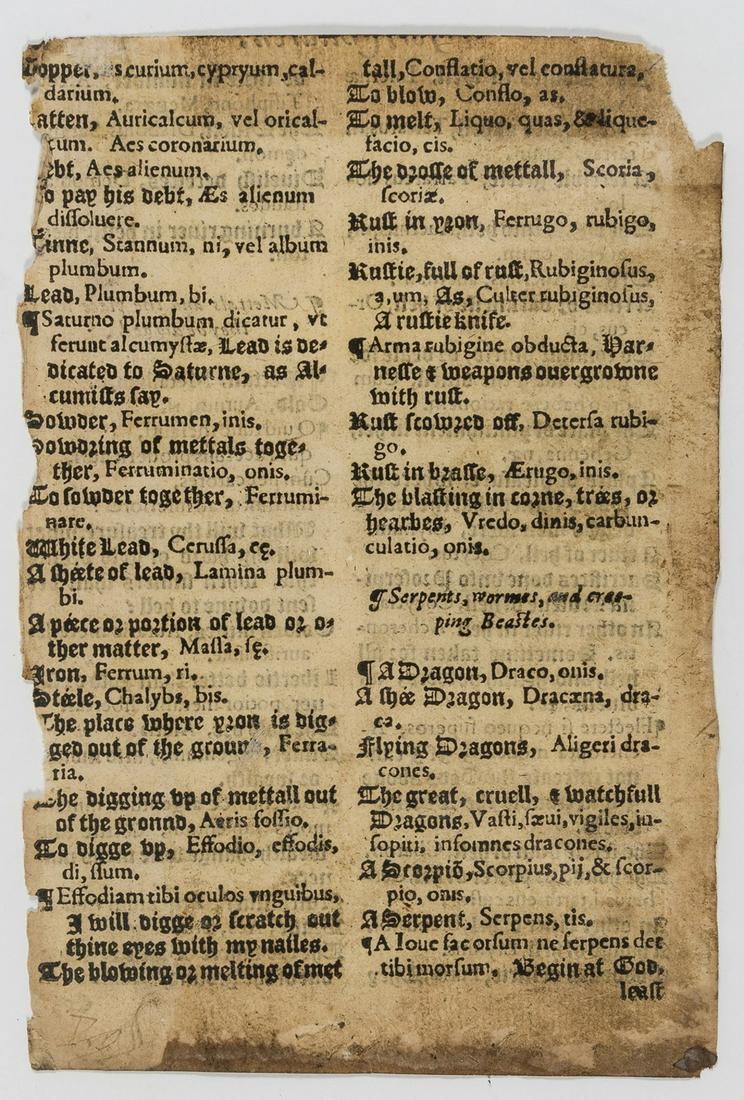 Copper, scurium, cypryum, cal-
darium.
atten, Auricalcum, vel orical-
cum. Aes coronarium.
ebt, Aes alienum.
o pay his debt, Æs alienum
dissoluere.
Tinne, Stannum, ni, vel album
plumbum.
Lead, Plumbum, bi.
¶Saturno plumbum dicatur, vt
ferunt alcumystæ, Lead is de-
dicated to Saturne, as Al-
cumists say.
Sowder, Ferrumen, inis.
Sowdring of mettals toge-
ther, Ferruminatio, onis.
To sowder together, Ferrumi-
nare.
White Lead, Cerussa, cę.
A shéete of lead, Lamina plum-
bi.
A péece or portion of lead or o-
ther matter, Massa, sę.
Iron, Ferrum, ri.
Stéele, Chalybs, bis.
The place where yron is dig-
ged out of the groun, Ferra-
ria.
The digging vp of mettall out
of the gronnd, Aeris fossio.
To digge vp, Effodio, effodis,
di, ssum.
¶Effodiam tibi oculos vnguibus,
I will digge or scratch out
thine eyes with my nailes.
The blowing or melting of met
tall, Conflatio, vel conflatura.
To blow, Conflo, as.
To melt, Liquo, quas, & lique-
facio, cis.
The drosse of mettall, Scoria,
scoriæ.
Rust in yron, Ferrugo, rubigo,
inis.
Rustie, full of rust, Rubiginosus,
a, um, As, Culter rubiginosus,
A rustie knife.
¶Arma rubigine obducta, Har-
nesse & weapons ouergrowne
with rust.
Rust scowred off, Detersa rubi-
go.
Rust in brasse, Ærugo, inis.
The blasting in corne, trées, or
hearbes, Vredo, dinis, carbun-
culatio, onis.
¶Serpents, wormes, and cree-
ping Beastes.
¶A Dragon, Draco, onis.
A shée Dragon, Dracæna, dra-
cæ.
Flying Dragons, Aligeri dra-
cones.
The great, cruell, & watchfull
Dragons, Vasti, sæui, vigiles, in-
sopiti, insomnes dracones.
A Scorpiō, Scorpius, pij, & scor-
pio, onis.
A Serpent, Serpens, tis.
¶A Ioue fac orsum ne serpens det
tibi morsum. Begin at God,
least